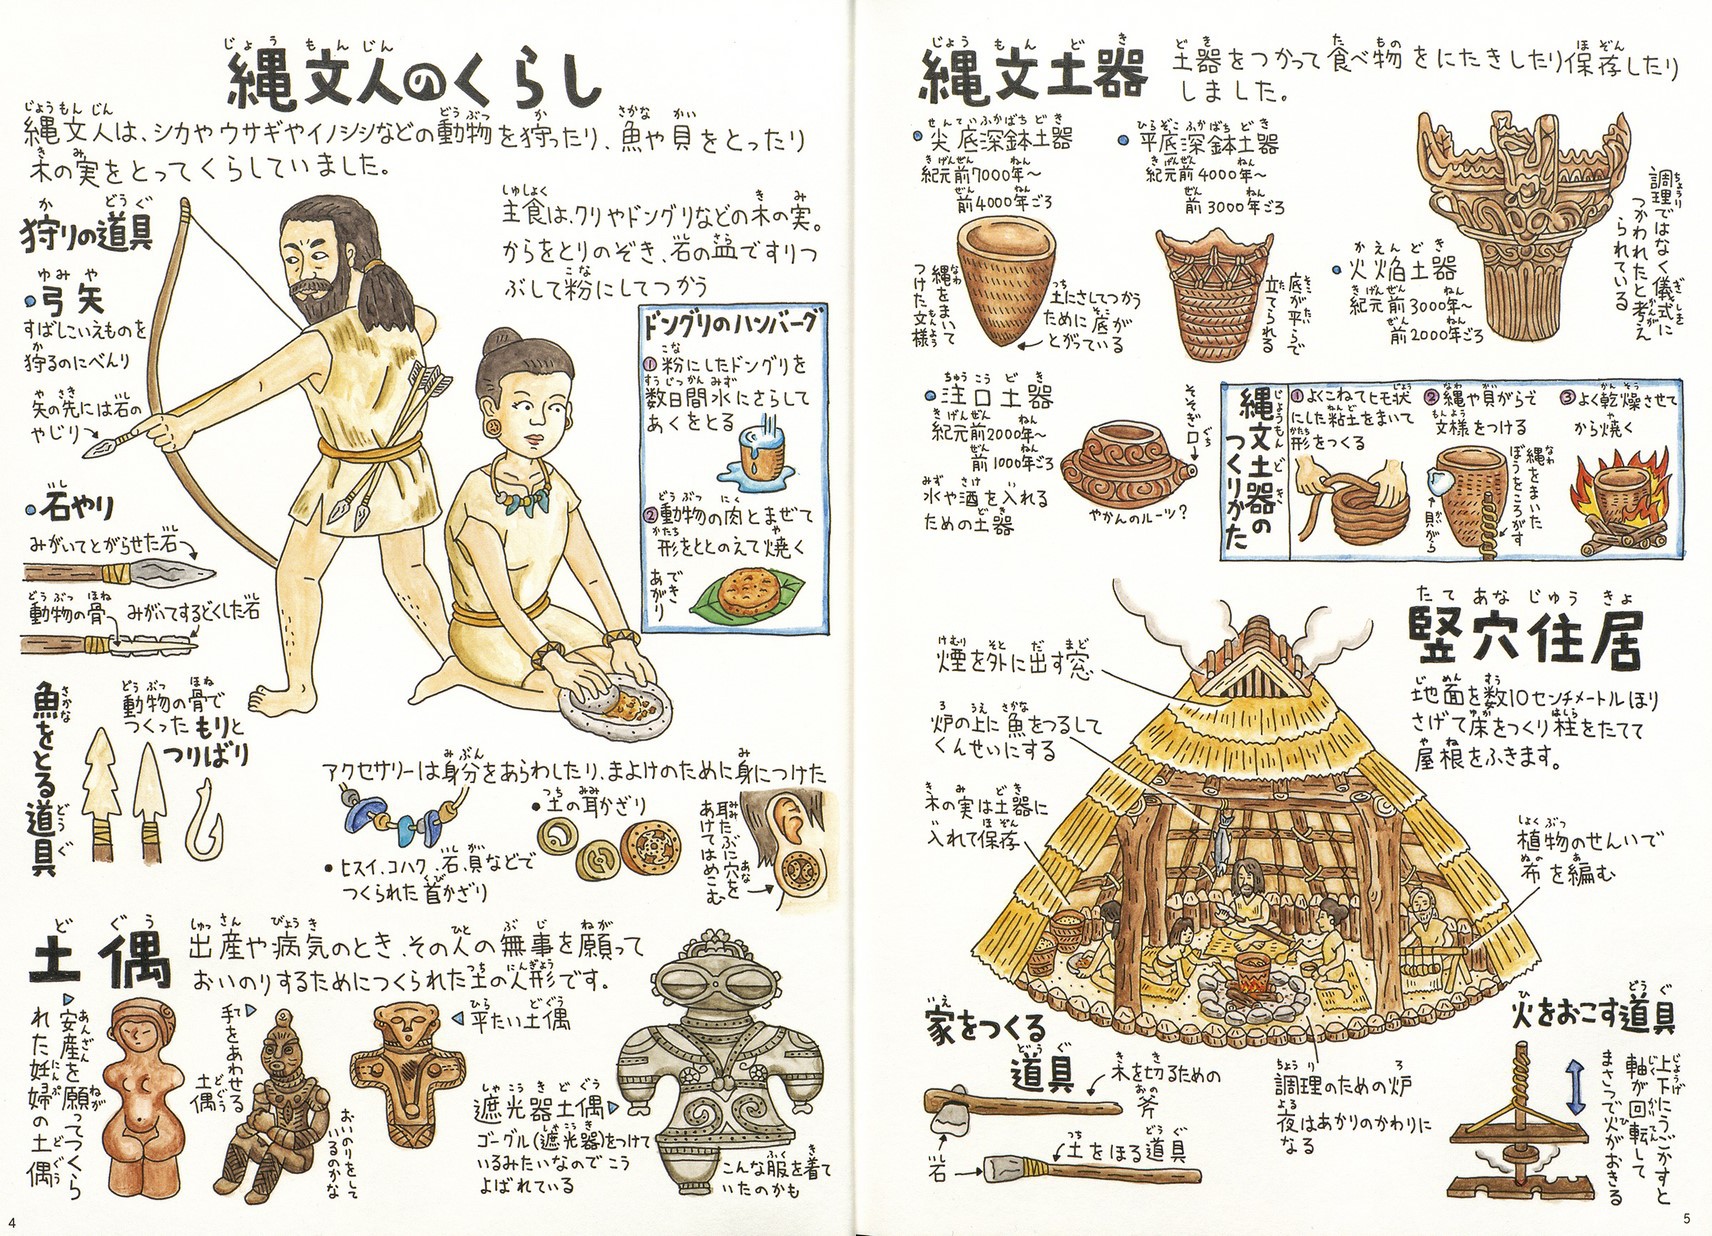 縄文人のくらし
縄文人は、シカやウサギやイノシシなどの動物を狩ったり、魚や貝をとったり
木の実をとってくらしていました。
狩りの道具
弓矢
すばしこいえものを
狩るのにべんり
矢の先には石の
やじり
石やり
みがいてとがらせた石
動物の骨
みがいてするどくした石
主食は、クリやドングリなどの木の実。
からをとりのぞき、岩の皿ですりつ
ぶして粉にしてつかう
ドングリのハンバーグ
①粉にしたドングリを
数日間水にさらして
あくをとる
②動物の肉とまぜて
形をととのえて焼く
できあがり
魚をとる道具
動物の骨で
つくったもりと
つりばり
アクセサリーは身分をあらわしたり、まよけのために身につけた
ヒスイ、コハク、石、貝などで
つくられた首かざり
土の耳かざり
耳たぶに穴を
あけてはめこむ
土偶
出産や病気のとき、その人の無事を願って
おいのりするためにつくられた土の人形です。
安産を願ってつくら
れた妊婦の土偶
手をあわせる
土偶
おいのりをして
いるのかな
平たい土偶
遮光器土偶
ゴーグル(遮光器)をつけて
いるみたいなのでこう
よばれている
こんな服を着て
いたのかも
4
縄文土器
土器をつかって食べ物をにたきしたり保存したり
しました。
尖底深鉢土器
紀元前7000年〜
前4000年ごろ
縄をまいて
つけた文様
土にさしてつかう
ために底が
とがっている
平底深鉢土器
紀元前4000年〜
前3000年ごろ
底が平らで
立てられる
火焔土器
紀元前3000年〜
前2000年ごろ
調理ではなく儀式に
つかわれたと考え
られている
注口土器
紀元前2000年〜
前1000年ごろ
水や酒を入れる
ための土器
そそぎ口
やかんのルーツ?
縄文土器の
つくりかた
①よくこねてヒモ状
にした粘土をまいて
形をつくる
②縄や貝がらで
文様をつける
貝がら
縄をまいた
ぼうをころがす
③よく乾燥させて
から焼く
竪穴住居
地面を数10センチメートルほり
さげて床をつくり柱をたてて
屋根をふきます。
煙を外に出す窓
炉の上に魚をつるして
くんせいにする
木の実は土器に
入れて保存
植物のせんいで
布を編む
調理のための炉
夜はあかりのかわりに
なる
家をつくる
道具
木を切るための
斧
石
土をほる道具
火をおこす道具
上下にうごかすと
軸が回転して
まさつで火がおきる
5